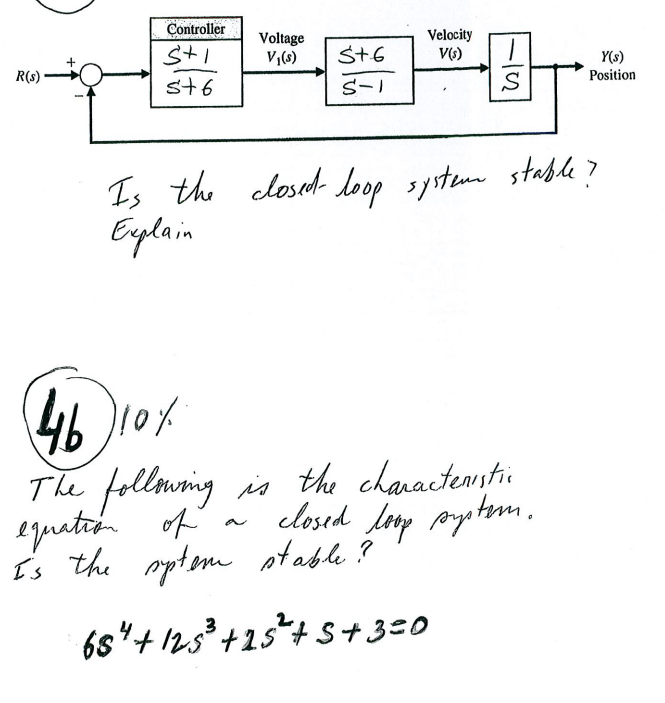 Controller
Voltage
V₁(s)
Velocity
V(s)
R(s)
+
−
S+1
S+6
S+6
S-1
1
S
Y(s)
Position
Is the closed-loop system stable?
Explain
4b 10%
The following is the characteristic
equation of a closed loop system.
Is the system stable?
6s⁴+12s³+2s²+s+3=0